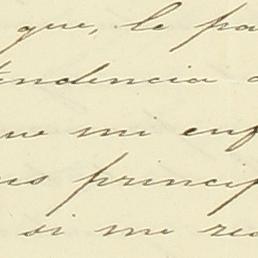 que, le pa
tendencia a
que mi enf
es princip
si me re